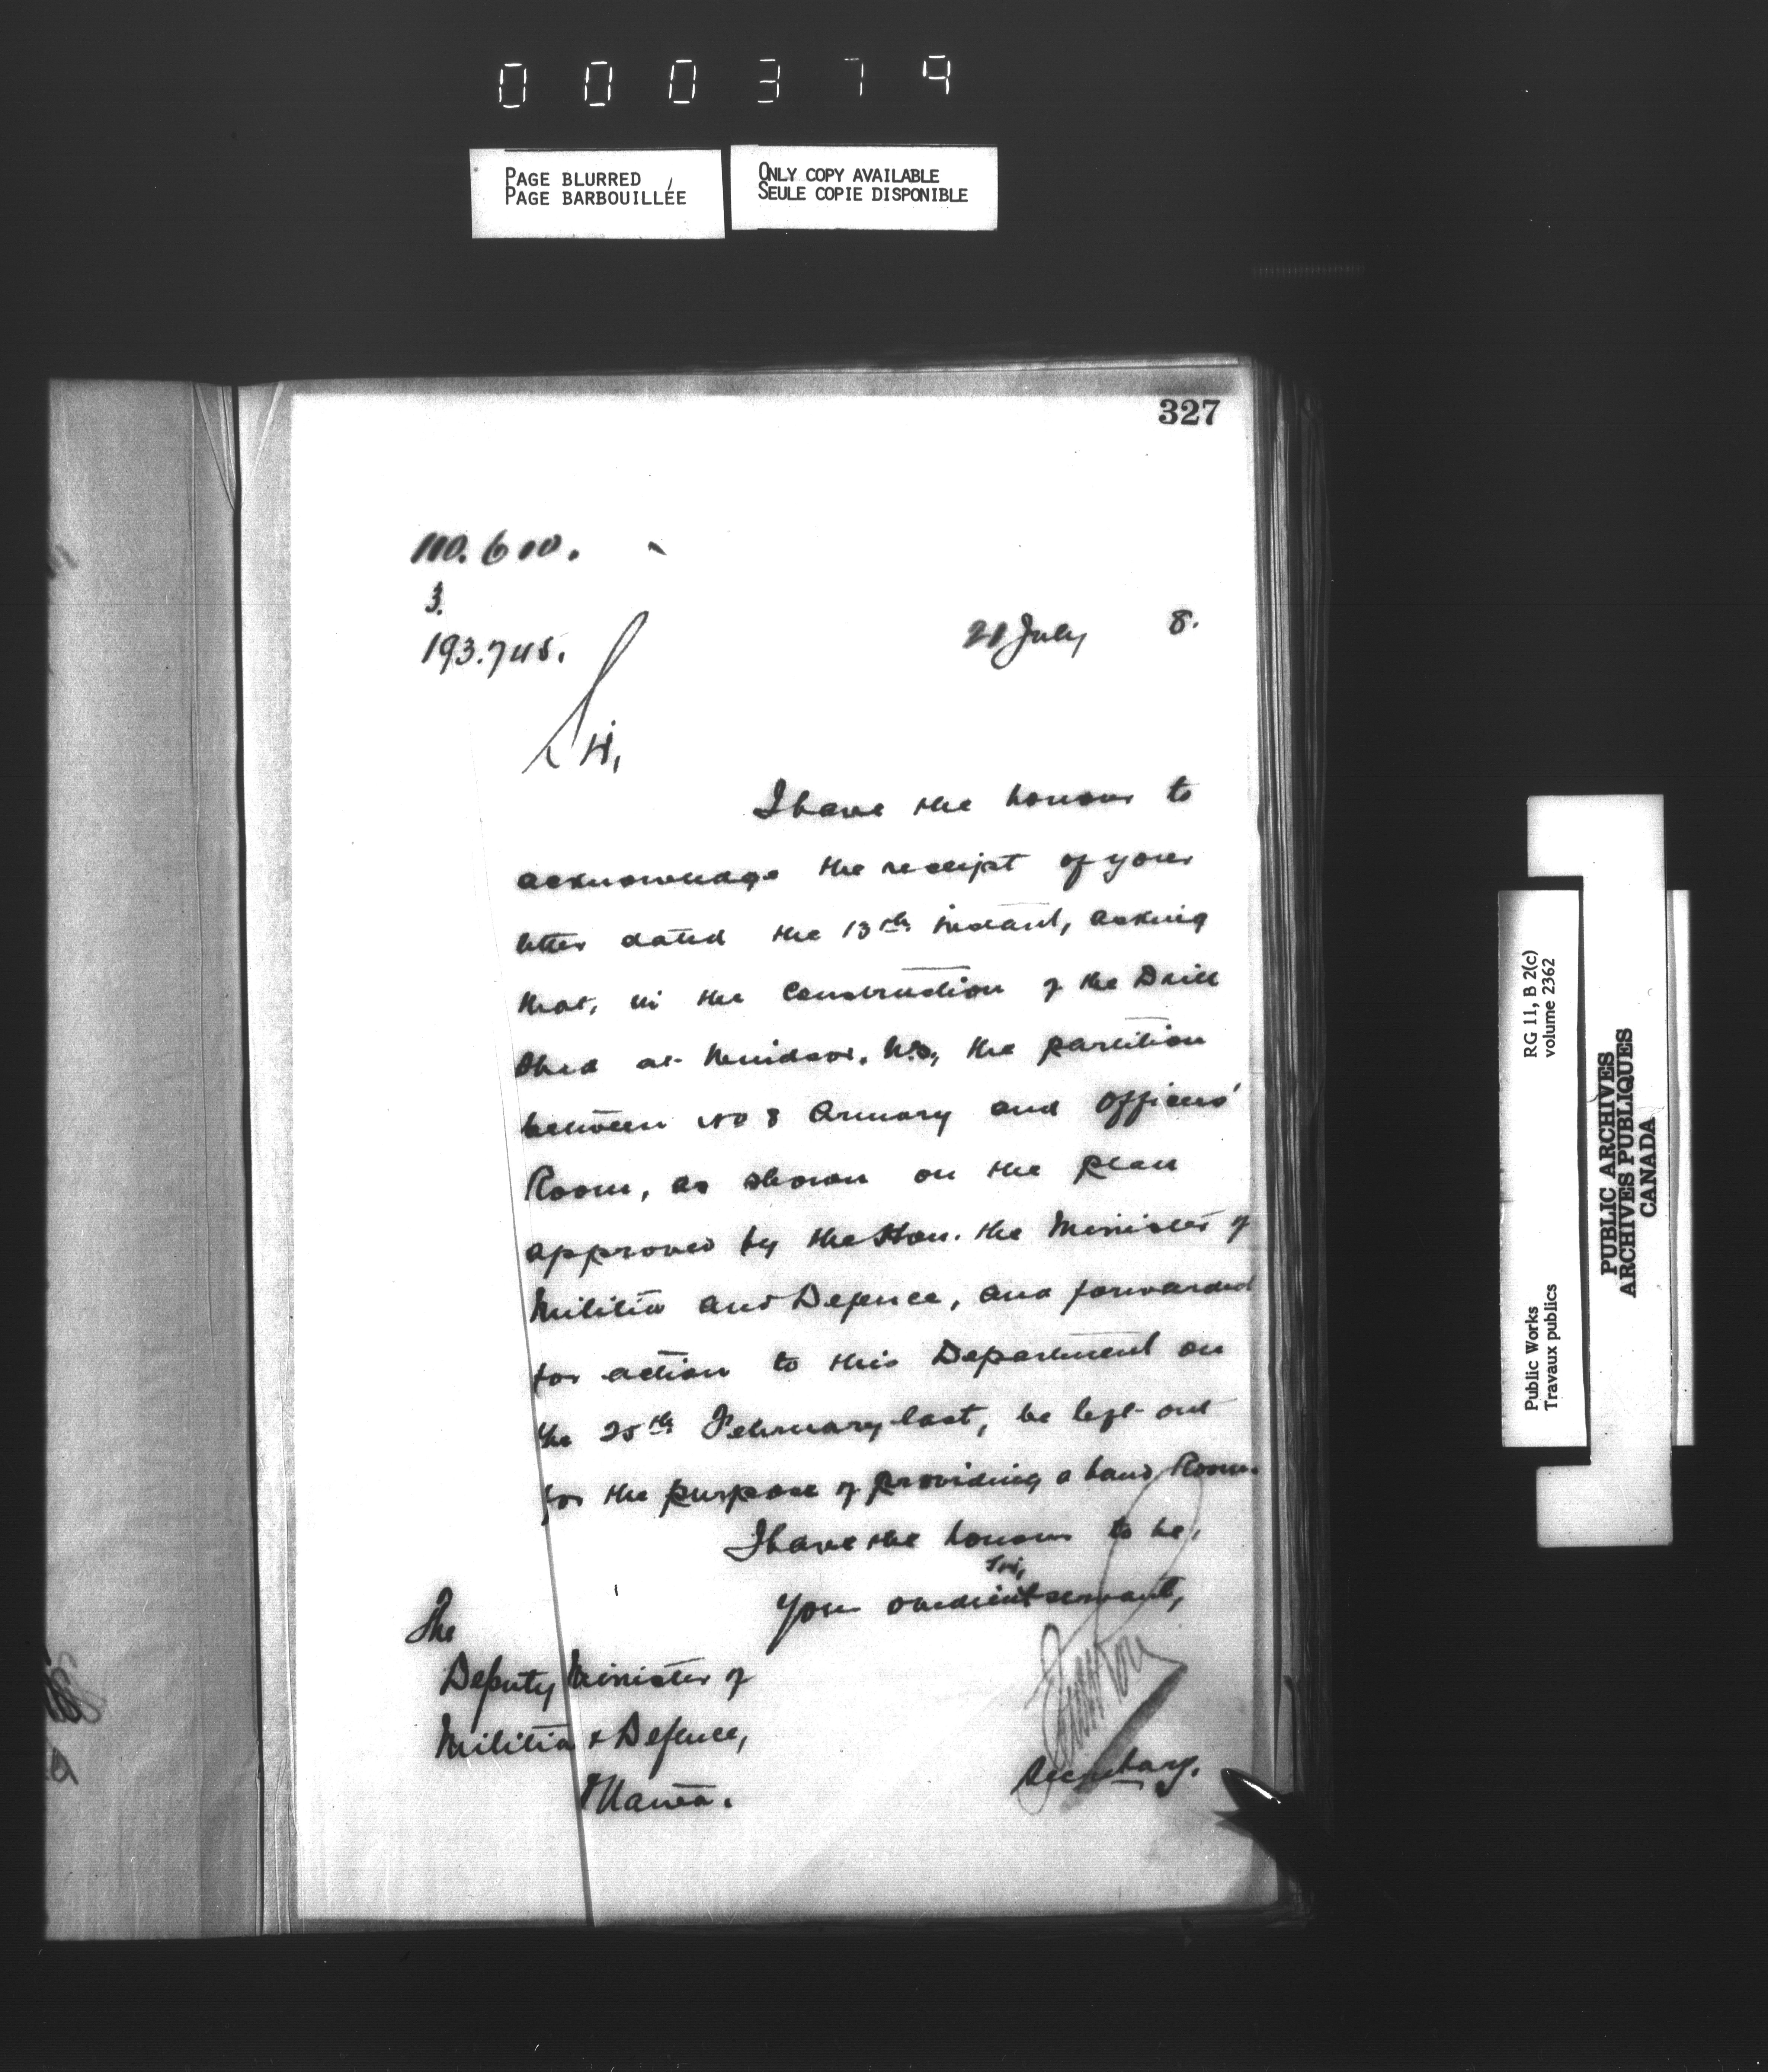 000379
PAGE BLURRED
PAGE BARBOUILLÉE
ONLY COPY AVAILABLE
SEULE COPIE DISPONIBLE
327
3.
193.745.
21 July 8.
Sir,
I have the honour to
acknowledge the receipt of your
letter dated the 13th instant, asking
that, in the construction of the Drill
Shed at Windsor, N.S., the partition
between No 8 Armory and Officers'
Room, as shown on the plan
approved by the Hon. the Minister of
Militia and Defence, and forwarded
for action to this Department on
the 25th February last, be left out
for the purpose of providing a band Room.
I have the honour to be,
Sir,
Your obedient servant,
The
Deputy Minister of
Militia & Defence,
Ottawa.
Secretary.
Public Works
Travaux publics
RG 11, B 2(c)
volume 2362
PUBLIC ARCHIVES
ARCHIVES PUBLIQUES
CANADA